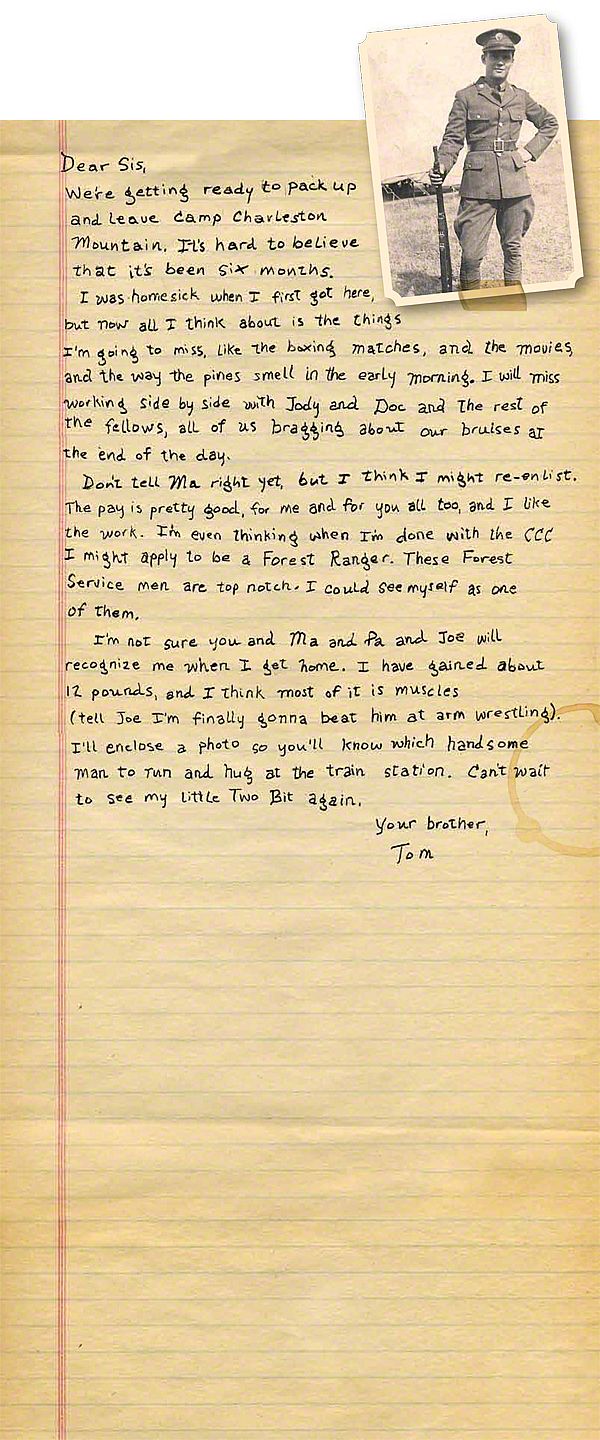 Dear Sis,
We're getting ready to pack up
and leave Camp Charleston
Mountain. It's hard to believe
that it's been six months.
I was homesick when I first got here,
but now all I think about is the things
I'm going to miss, like the boxing matches, and the movies,
and the way the pines smell in the early morning. I will miss
working side by side with Jody and Doc and the rest of
the fellows, all of us bragging about our bruises at
the end of the day.
Don't tell Ma right yet, but I think I might re-enlist.
The pay is pretty good, for me and for you all too, and I like
the work. I'm even thinking when I'm done with the CCC
I might apply to be a Forest Ranger. These Forest
Service men are top notch. I could see myself as one
of them.
I'm not sure you and Ma and Pa and Joe will
recognize me when I get home. I have gained about
12 pounds, and I think most of it is muscles
(tell Joe I'm finally gonna beat him at arm wrestling).
I'll enclose a photo so you'll know which handsome
man to run and hug at the train station. Can't wait
to see my little Two Bit again.
Your brother,
Tom